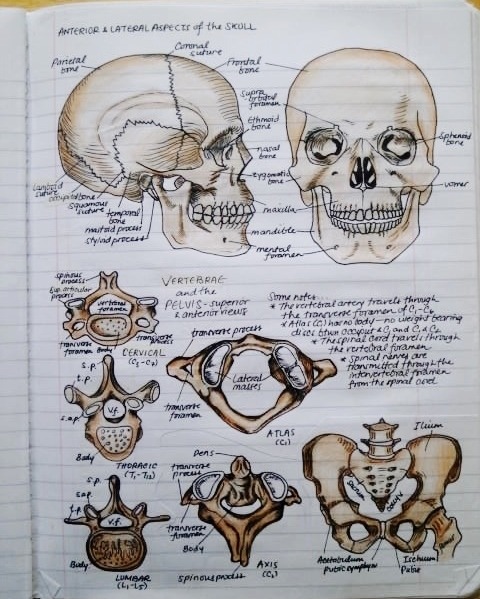 ANTERIOR & LATERAL ASPECTS of the SKULL
Parietal
bone
Coronal
suture
Frontal
bone
Supra
orbital
foramen
Ethmoid
bone
nasal
bone
zygomatic
bone
Sphenoid
bone
vomer
Lambdoid
suture
occipital bone
squamous
suture
temporal
bone
mastoid process
styloid process
maxilla
mandible
mental
foramen
spinous
process
Sup. articular
process
vertebral
foramen
transverse
foramen
Body
transverse
process
CERVICAL
(C3-C7)
VERTEBRAE
and the
PELVIS - superior
& anterior views
Some notes...
* The vertebral artery travels through
the transverse foramen of C1-C6
* Atlas (C1) has no body - no weight bearing
discs btwn occiput & C1 and C1 & C2
* The spinal cord travels through
the vertebral foramen
* spinal nerves are
transmitted through the
intervertebral foramen
from the spinal cord
transverse process
Lateral
masses
transverse
foramen
ATLAS
(C1)
S.p.
t.p.
v.f.
s.a.p.
Body
THORACIC
(T1-T12)
S.p.
s.a.p.
t.p.
v.f.
Body
LUMBAR
(L1-L5)
Dens
transverse
process
transverse
foramen
Body
spinous process
AXIS
(C2)
Ilium
sacrum
coccyx
Acetabulum
pubic symphysis
Ischium
Pubis
femur